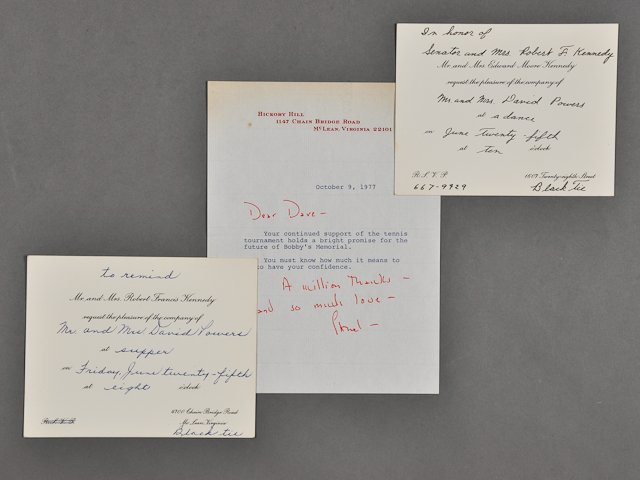 In honor of
Senator and Mrs. Robert F. Kennedy
Mr. and Mrs. Edward Moore Kennedy
request the pleasure of the company of
Mr. and Mrs. David Powers
at a dance
on June twenty-fifth
at ten o'clock
R. S. V. P. 1607 Twenty-eighth Street
667-9929 Black Tie
Hickory Hill
1147 Chain Bridge Road
McLean, Virginia 22101
October 9, 1977
Dear Dave –
Your continued support of the tennis
tournament holds a bright promise for the
future of Bobby's Memorial.
You must know how much it means to
to have your confidence.
A million thanks –
and so much love –
Ethel –
to remind
Mr. and Mrs. Robert Francis Kennedy
request the pleasure of the company of
Mr. and Mrs. David Powers
at supper
on Friday, June twenty-fifth
at eight o'clock
Chain Bridge Road
McLean, Virginia
Black tie